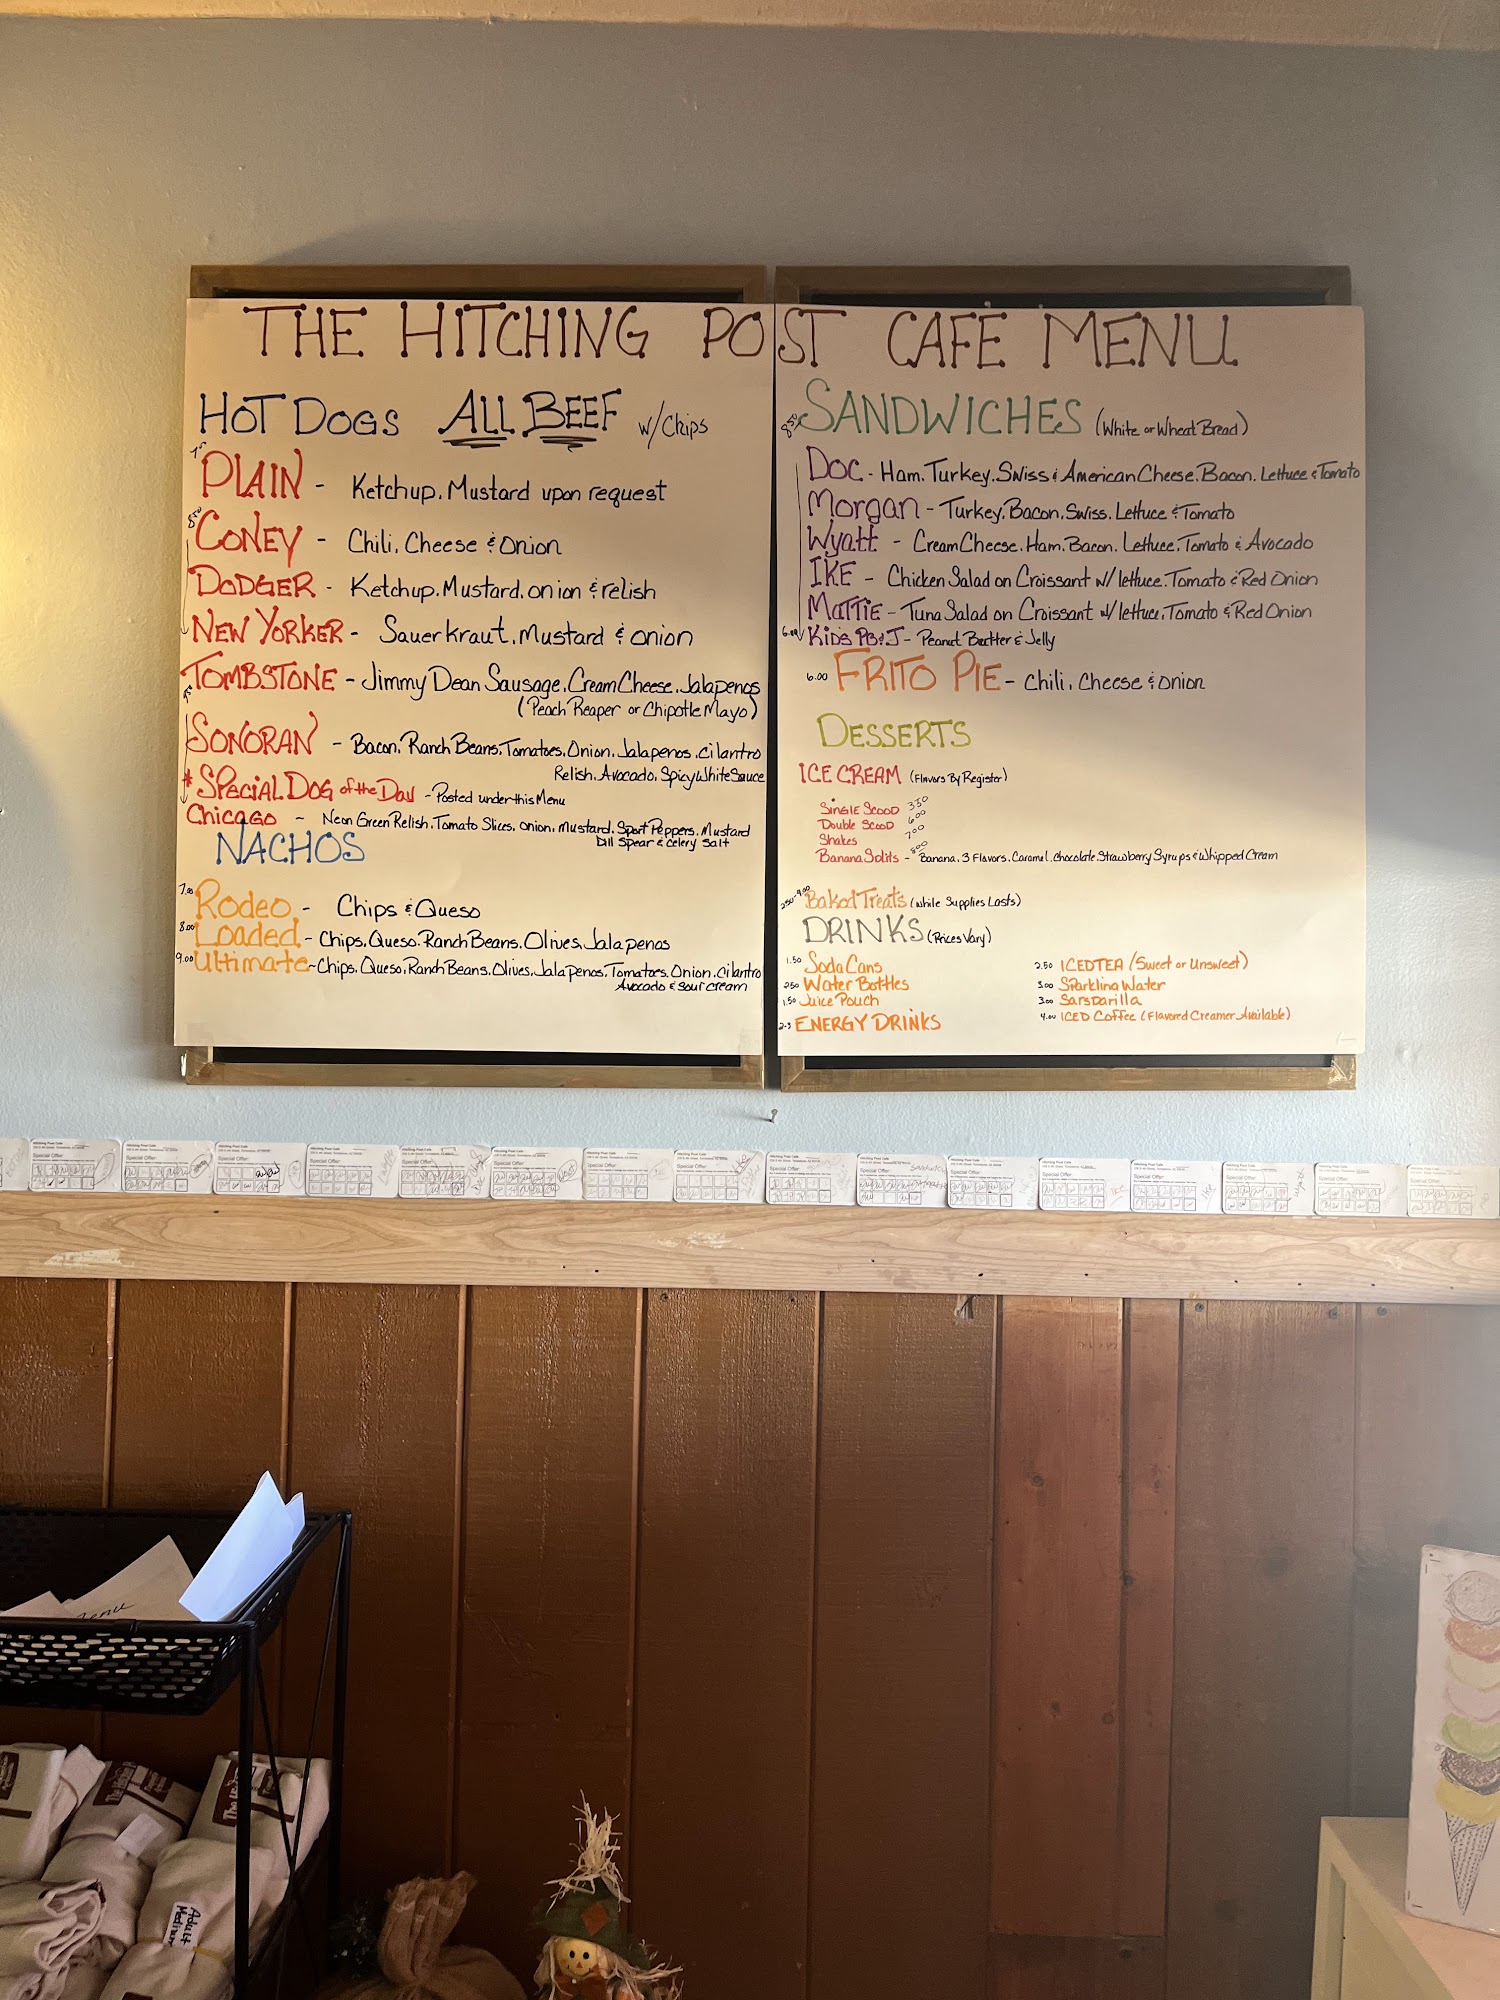 THE HITCHING POST CAFE MENU
HOT DOGS ALL BEEF w/Chips
PLAIN - Ketchup, Mustard upon request
8.50 CONEY - Chili, Cheese & Onion
DODGER - Ketchup, Mustard, onion & relish
NEW YORKER - Sauerkraut, Mustard & onion
TOMBSTONE - Jimmy Dean Sausage, Cream Cheese, Jalapenos
(Peach Reaper or Chipotle Mayo)
SONORAN - Bacon, Ranch Beans, Tomatoes, Onion, Jalapenos, cilantro
Relish, Avocado, Spicy White Sauce
* SPECIAL DOG of the Day - Posted under this Menu
Chicago - Neon Green Relish, Tomato Slices, onion, Mustard, Sport Peppers, Mustard
Dill Spear & celery Salt
NACHOS
7.00 Rodeo - Chips & Queso
8.00 Loaded - Chips, Queso, Ranch Beans, Olives, Jalapenos
9.00 Ultimate - Chips, Queso, Ranch Beans, Olives, Jalapenos, Tomatoes, Onion, cilantro
Avocado & sour cream
8.50 SANDWICHES (White or Wheat Bread)
DOC - Ham, Turkey, Swiss & American Cheese, Bacon, Lettuce & Tomato
Morgan - Turkey, Bacon, Swiss, Lettuce & Tomato
Wyatt - Cream Cheese, Ham, Bacon, Lettuce, Tomato & Avocado
IKE - Chicken Salad on Croissant w/ lettuce, Tomato & Red Onion
MATTIE - Tuna Salad on Croissant w/ lettuce, Tomato & Red Onion
6.00 Kids PB&J - Peanut Butter & Jelly
6.00 FRITO PIE - Chili, Cheese & Onion
DESSERTS
ICE CREAM (Flavors By Register)
SINGLE SCOOP 350
Double Scoop 600
Shakes 700
Banana Splits - 800 Banana, 3 Flavors, Caramel, Chocolate, Strawberry Syrups & Whipped Cream
250-4.00 Baked Treats (While Supplies Lasts)
DRINKS (Prices Vary)
1.50 Soda Cans
250 Water Bottles
1.50 Juice Pouch
2-3 ENERGY DRINKS
2.50 ICED TEA (Sweet or Unsweet)
3.00 Sparkling Water
3.00 Sarsparilla
4.00 ICED Coffee (Flavored Creamer Available)
Hitching Post Cafe
Special Offer:
Hitching Post Cafe
Special Offer:
Hitching Post Cafe
Special Offer:
Special Offer:
Special Offer:
Special Offer:
Special Offer:
Special Offer:
Special Offer:
Special Offer:
Special Offer:
Special Offer:
Special Offer:
Ike
Special Offer:
Ike
Special Offer:
Wyatt
Special Offer:
Menu
Adult
Medium